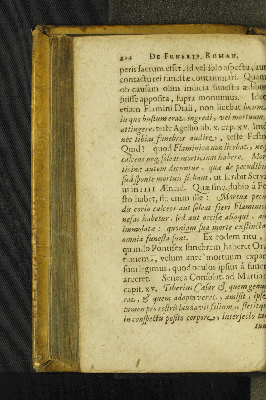 414 DE FUNERIB. ROMAN.
peris factum esset, id vel solo aspectu, aut
contactu rei funestæ contaminari. Quam
ob causam olim indicia funestis ædibus
fuisse apposita, supra monuimus.
etiam Flamini Diali, non licebat locum,
in quo bustum erat, ingredi, vel mortuum
attingere, teste Agellio lib. X. cap. XV.
nec tibias funebres audire, teste Festo
Quid? quod Flaminicæ non licebat, neq;
calceos neq; soleas morticinas habere. Mor-
ticinæ autem dicuntur, quæ de pecudibus
sud sponte mortuis fiant, ut scribit Servi-
us in IIII Æneid. Quæ sine dubio à Fe-
sto habet, sic enim ille: Mortuæ pecudis
de corio calceos aut soleas fieri Flaminicis
nefas habetur, sed aut occisæ alioqui, aut
immolatæ: quoniam sua morte exstincta
omnia funesta sunt. Ex eodem ritu,
quando Pontifex funebrem haberet Or-
tionem, velum ante mortuum expan-
sum legimus, quod oculos ipsius à funere
arceret. Seneca Consolat. ad Martiam
capit. XV. Tiberius Cæsar & quem genue-
rat, & quem adoptaverat, amisit, ipse
tamen pro rostris laudavit filium, stetitque
in conspectu posito corpore, interjecto tan-